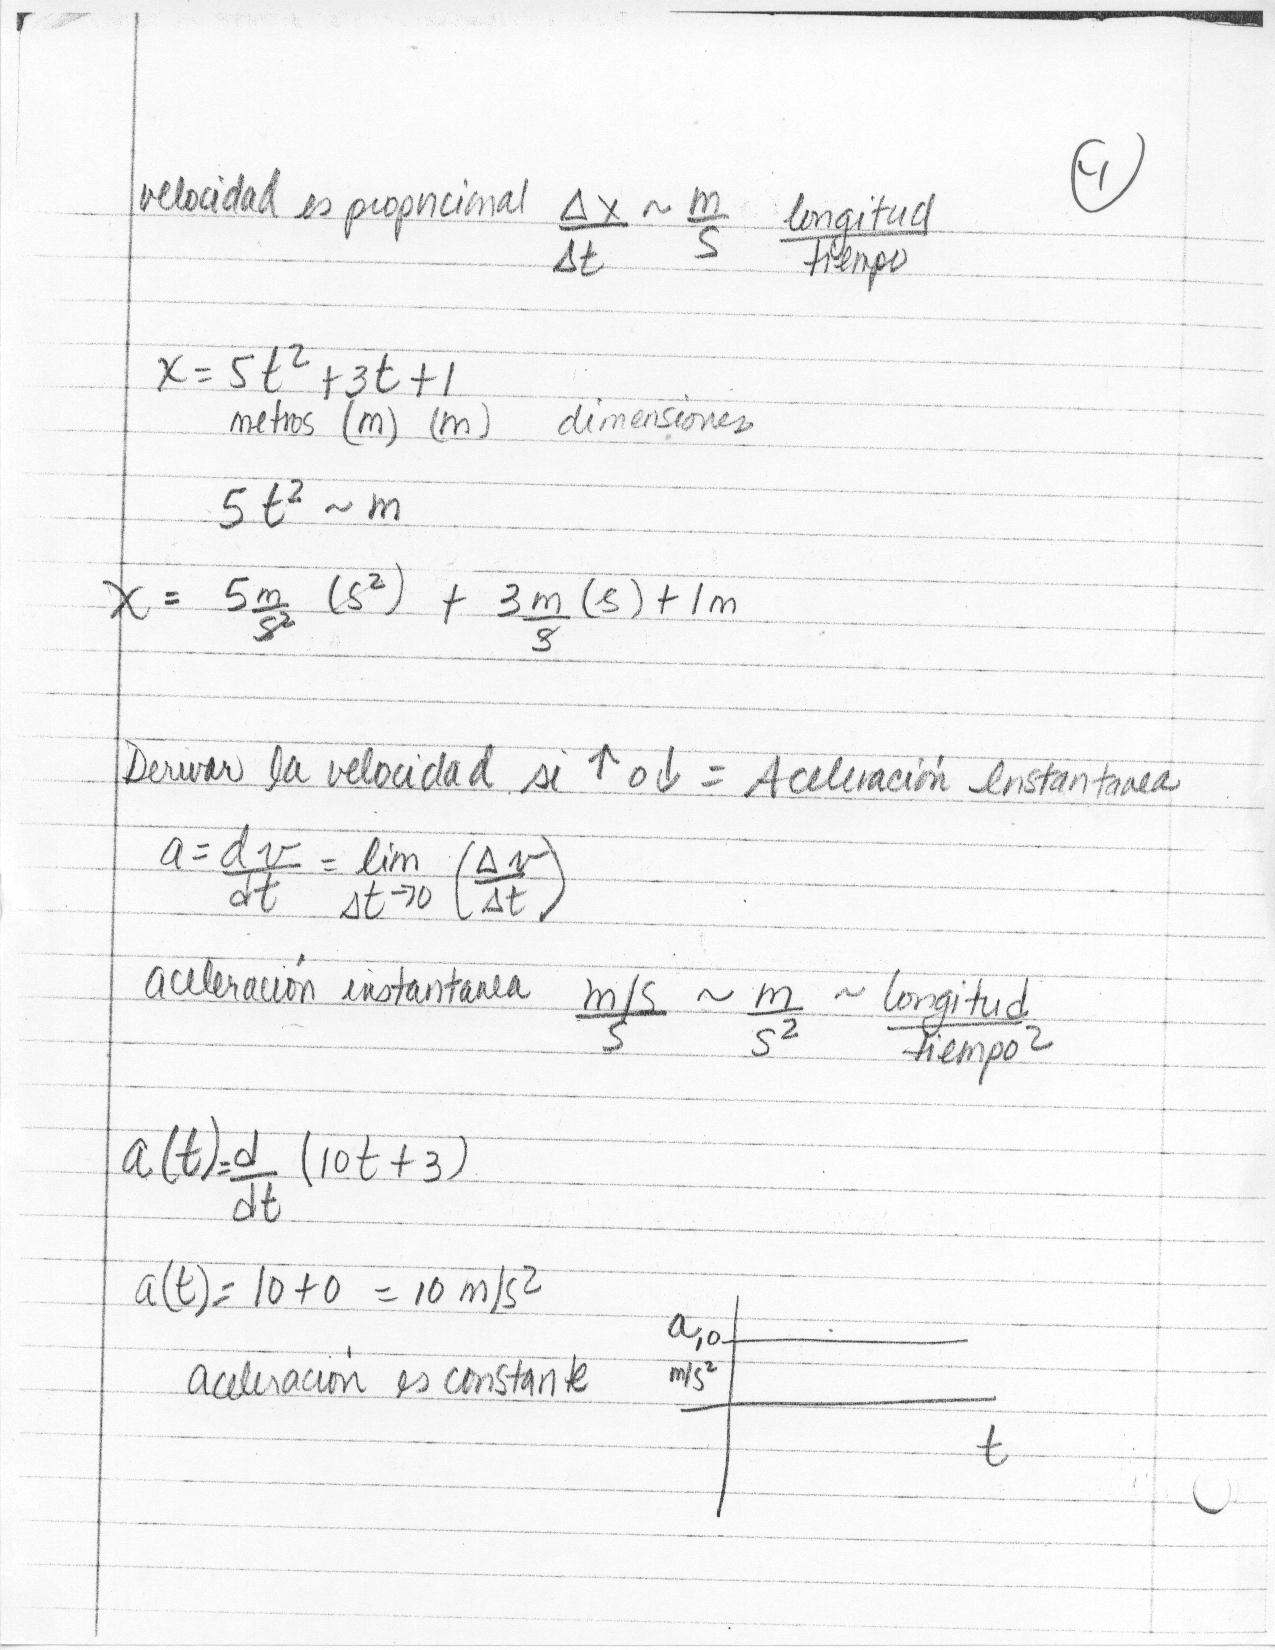 4
velocidad es proporcional Δx/Δt ~ m/s longitud/tiempo
x = 5t² + 3t + 1
metros (m) (m) dimensiones
5t² ~ m
x = 5 m/s² (s²) + 3 m/s (s) + 1m
Derivar la velocidad si ↑ o ↓ = Aceleración Instantanea
a = dv/dt = lim Δt→0 (Δv/Δt)
aceleración instantanea m/s/s ~ m/s² ~ longitud/tiempo²
a(t) = d/dt (10t + 3)
a(t) = 10 + 0 = 10 m/s²
aceleración es constante
a 10
m/s²
t